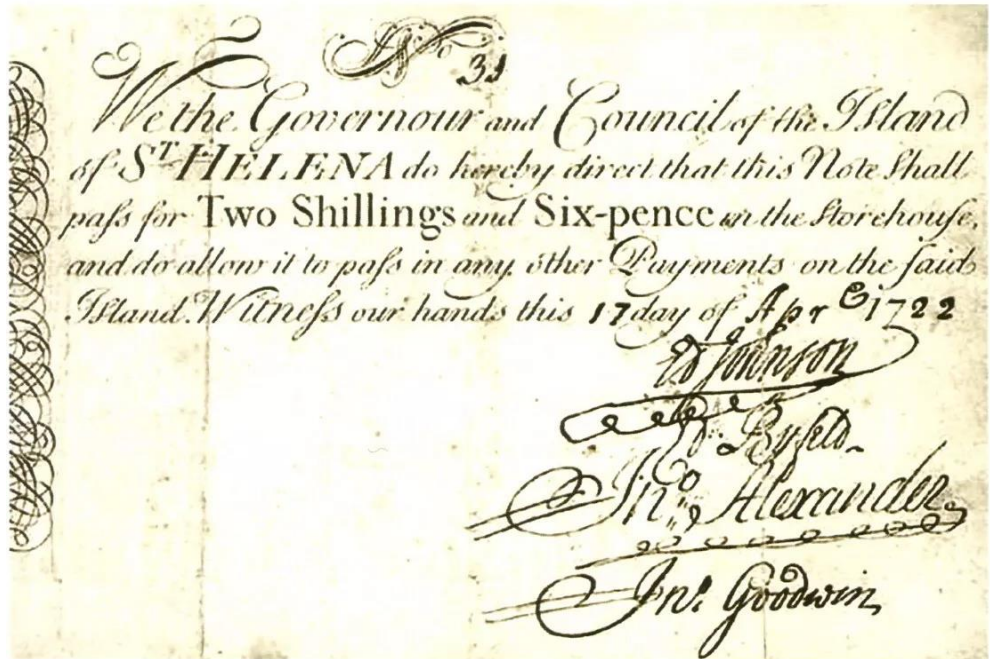 No 31
We the Governour and Council of the Island
of ST HELENA do hereby direct that this Note Shall
paſs for Two Shillings and Six-pence in the Storehouſe,
and do allow it to paſs in any other Payments on the ſaid
Iſland. Witneſs our hands this 17 day of Apr 1722
Ed Johnson
Ed Byfeld
Jno Alexander
Jno Goodwin